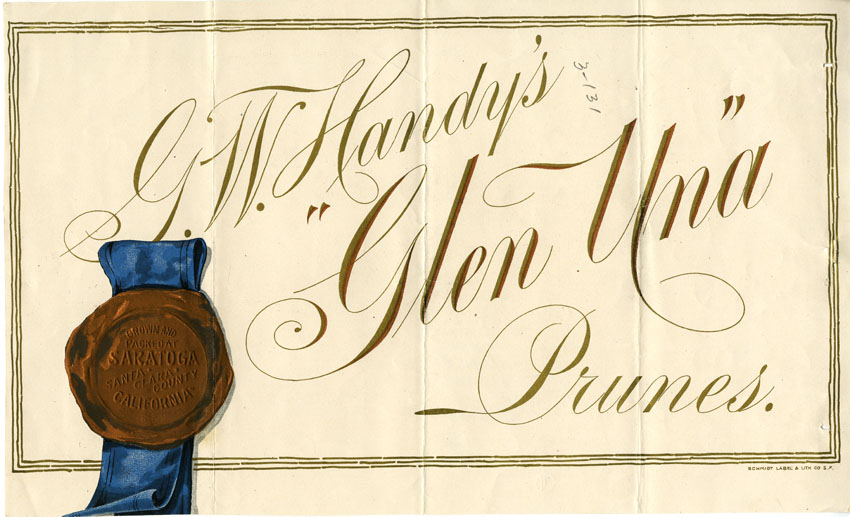 G. W. Handy's
3-131
"Glen Una"
Prunes.
GROWN AND
PACKED AT
SARATOGA
SANTA CLARA
COUNTY
CALIFORNIA
SCHMIDT LABEL & LITH. CO. S.F.